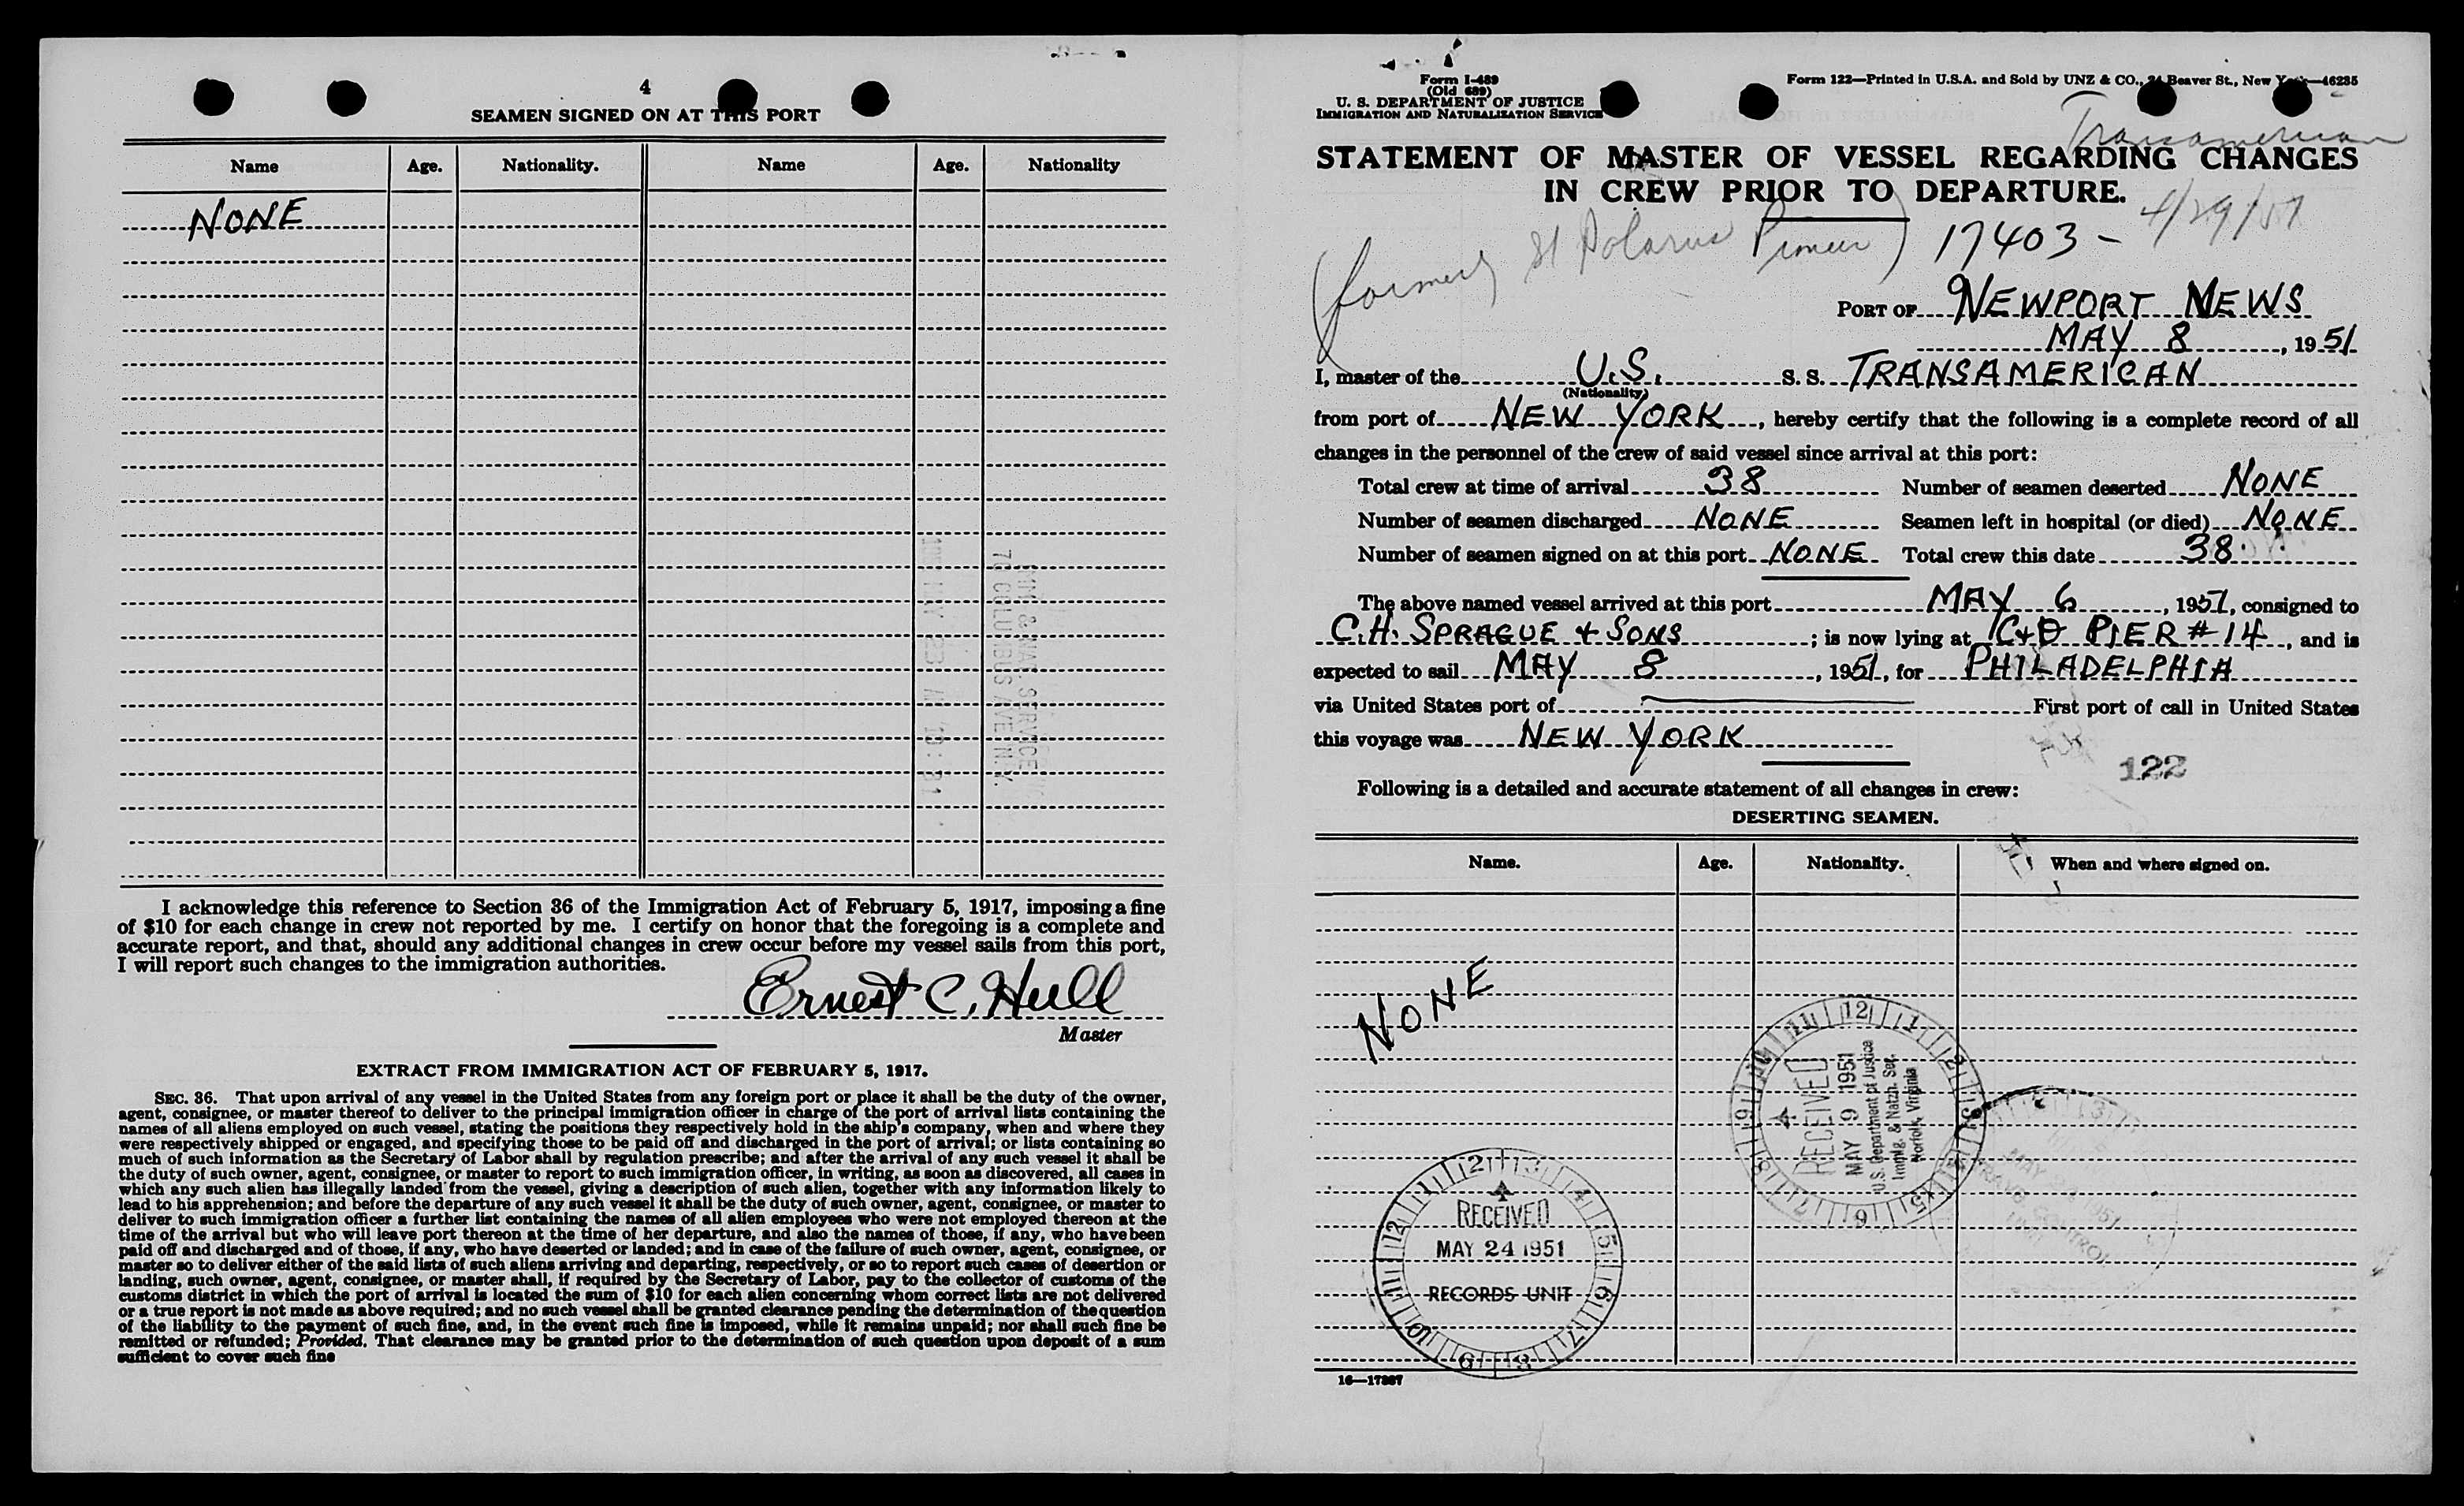 4
SEAMEN SIGNED ON AT THIS PORT
Name Age. Nationality. Name Age. Nationality
NONE
I acknowledge this reference to Section 36 of the Immigration Act of February 5, 1917, imposing a fine
of $10 for each change in crew not reported by me. I certify on honor that the foregoing is a complete and
accurate report, and that, should any additional changes in crew occur before my vessel sails from this port,
I will report such changes to the immigration authorities.
Ernest C. Hull
Master
EXTRACT FROM IMMIGRATION ACT OF FEBRUARY 5, 1917.
SEC. 36. That upon arrival of any vessel in the United States from any foreign port or place it shall be the duty of the owner,
agent, consignee, or master thereof to deliver to the principal immigration officer in charge of the port of arrival lists containing the
names of all aliens employed on such vessel, stating the positions they respectively hold in the ship's company, when and where they
were respectively shipped or engaged, and specifying those to be paid off and discharged in the port of arrival; or lists containing so
much of such information as the Secretary of Labor shall by regulation prescribe; and after the arrival of any such vessel it shall be
the duty of such owner, agent, consignee, or master to report to such immigration officer, in writing, as soon as discovered, all cases in
which any such alien has illegally landed from the vessel, giving a description of such alien, together with any information likely to
lead to his apprehension; and before the departure of any such vessel it shall be the duty of such owner, agent, consignee, or master to
deliver to such immigration officer a further list containing the names of all alien employees who were not employed thereon at the
time of the arrival but who will leave port thereon at the time of her departure, and also the names of those, if any, who have been
paid off and discharged and of those, if any, who have deserted or landed; and in case of the failure of such owner, agent, consignee, or
master so to deliver either of the said lists of such aliens arriving and departing, respectively, or so to report such cases of desertion or
landing, such owner, agent, consignee, or master shall, if required by the Secretary of Labor, pay to the collector of customs of the
customs district in which the port of arrival is located the sum of $10 for each alien concerning whom correct lists are not delivered
or a true report is not made as above required; and no such vessel shall be granted clearance pending the determination of the question
of the liability to the payment of such fine, and, in the event such fine is imposed, while it remains unpaid; nor shall such fine be
remitted or refunded; Provided, That clearance may be granted prior to the determination of such question upon deposit of a sum
sufficient to cover such fine
Form I-489
(Old 689)
U. S. DEPARTMENT OF JUSTICE
IMMIGRATION AND NATURALIZATION SERVICE
Form 122—Printed in U.S.A. and Sold by UNZ & CO., 24 Beaver St., New York—46235
Transamerican
STATEMENT OF MASTER OF VESSEL REGARDING CHANGES
IN CREW PRIOR TO DEPARTURE.
(formerly St Polarus Pioneer) 17403 - 4/29/51
PORT OF NEWPORT NEWS
MAY 8, 1951
I, master of the U.S. S. S. TRANSAMERICAN
(Nationality)
from port of NEW YORK, hereby certify that the following is a complete record of all
changes in the personnel of the crew of said vessel since arrival at this port:
Total crew at time of arrival 38 Number of seamen deserted NONE
Number of seamen discharged NONE Seamen left in hospital (or died) NONE
Number of seamen signed on at this port NONE Total crew this date 38
The above named vessel arrived at this port MAY 6, 1951, consigned to
C.H. SPRAGUE + SONS; is now lying at C+O PIER #14, and is
expected to sail MAY 8, 1951, for PHILADELPHIA
via United States port of First port of call in United States
this voyage was NEW YORK
122
Following is a detailed and accurate statement of all changes in crew:
DESERTING SEAMEN.
Name. Age. Nationality. When and where signed on.
NONE
RECEIVED
MAY 9 1951
U.S. Department of Justice
Immig. & Natzn. Ser.
Norfolk, Virginia
RECEIVED
MAY 24 1951
RECORDS UNIT
16—17387